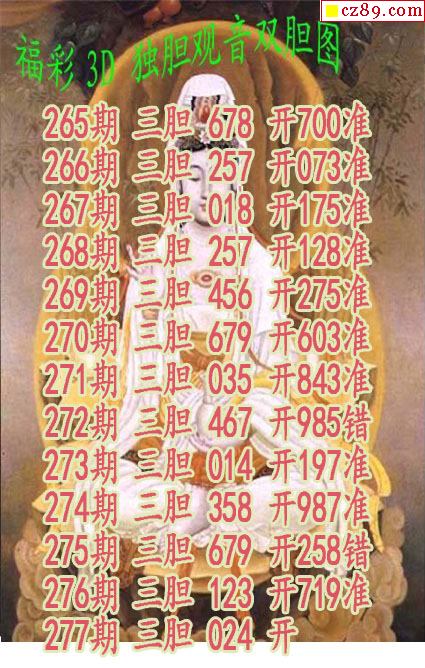 cz89.com
福彩 3D 独胆观音双胆图
265期 三胆 678 开700准
266期 三胆 257 开073准
267期 三胆 018 开175准
268期 三胆 257 开128准
269期 三胆 456 开275准
270期 三胆 679 开603准
271期 三胆 035 开843准
272期 三胆 467 开985错
273期 三胆 014 开197准
274期 三胆 358 开987准
275期 三胆 679 开258错
276期 三胆 123 开719准
277期 三胆 024 开